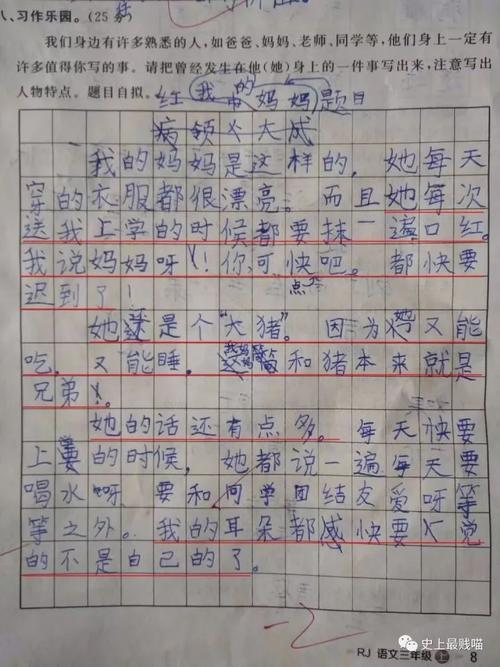 八、习作乐园。(25分)
我们身边有许多熟悉的人,如爸爸、妈妈、老师、同学等,他们身上一定有
许多值得你写的事。请把曾经发生在他(她)身上的一件事写出来,注意写出
人物特点。题目自拟。
我的妈妈 题目
大成
我的妈妈是这样的,她每天
穿的衣服都很漂亮。而且她每次
送我上学的时候都要抹一遍口红。
我说妈妈呀!你可快点吧。都快要
迟到了!
她还是个"大猪"。因为她又能
吃,又能睡,我妈妈和猪本来就是
兄弟。
她的话还有点多。每天快要
上学的时候,她都说一遍每天要
喝水呀要和同学团结友爱呀等
等之外。我的耳朵都感快要觉
的不是自己的了。
-2
RJ 语文三年级 上 8
史上最贱喵